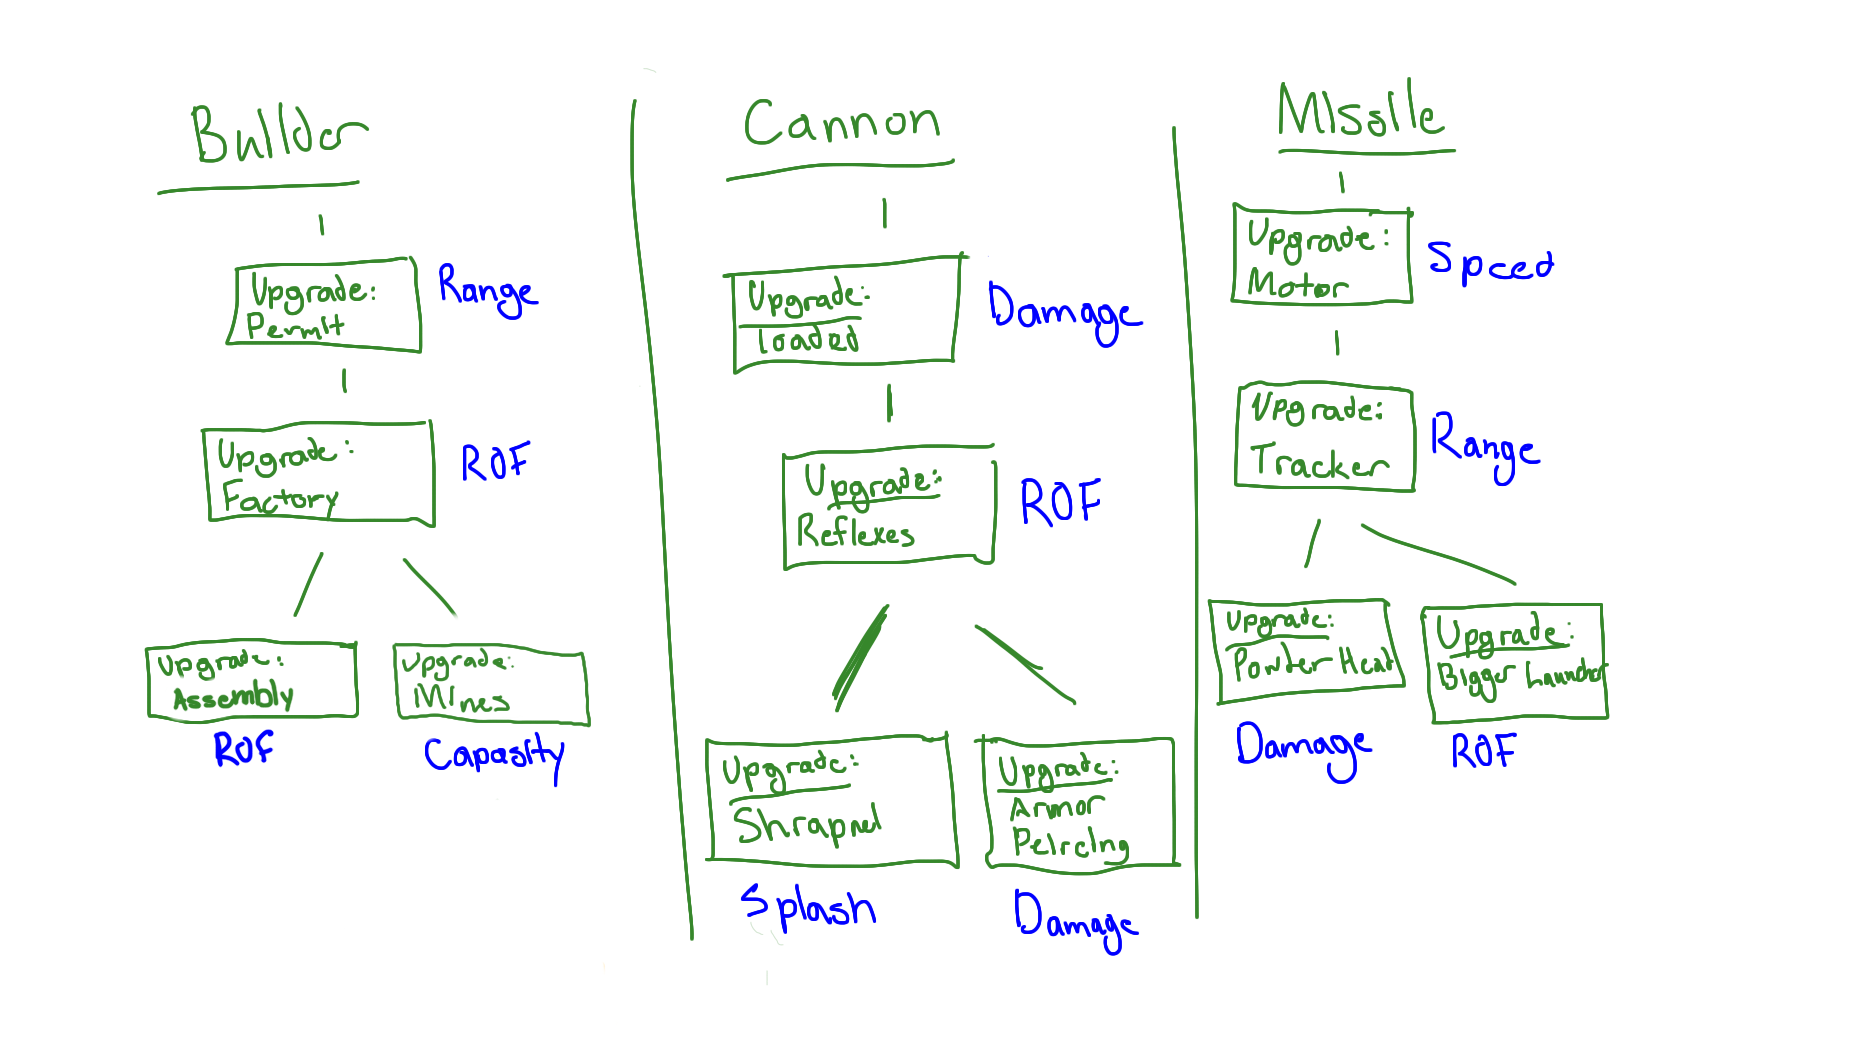 Builder
Upgrade:
Permit
Range
Upgrade:
Factory
ROF
Upgrade:
Assembly
ROF
Upgrade:
Mines
Capasity
Cannon
Upgrade:
loaded
Damage
Upgrade:
Reflexes
ROF
Upgrade:
Shrapnel
Splash
Upgrade:
Armor
Peircing
Damage
Missile
Upgrade:
Motor
Speed
Upgrade:
Tracker
Range
Upgrade:
Powter Heat
Damage
Upgrade:
Bigger
ROF